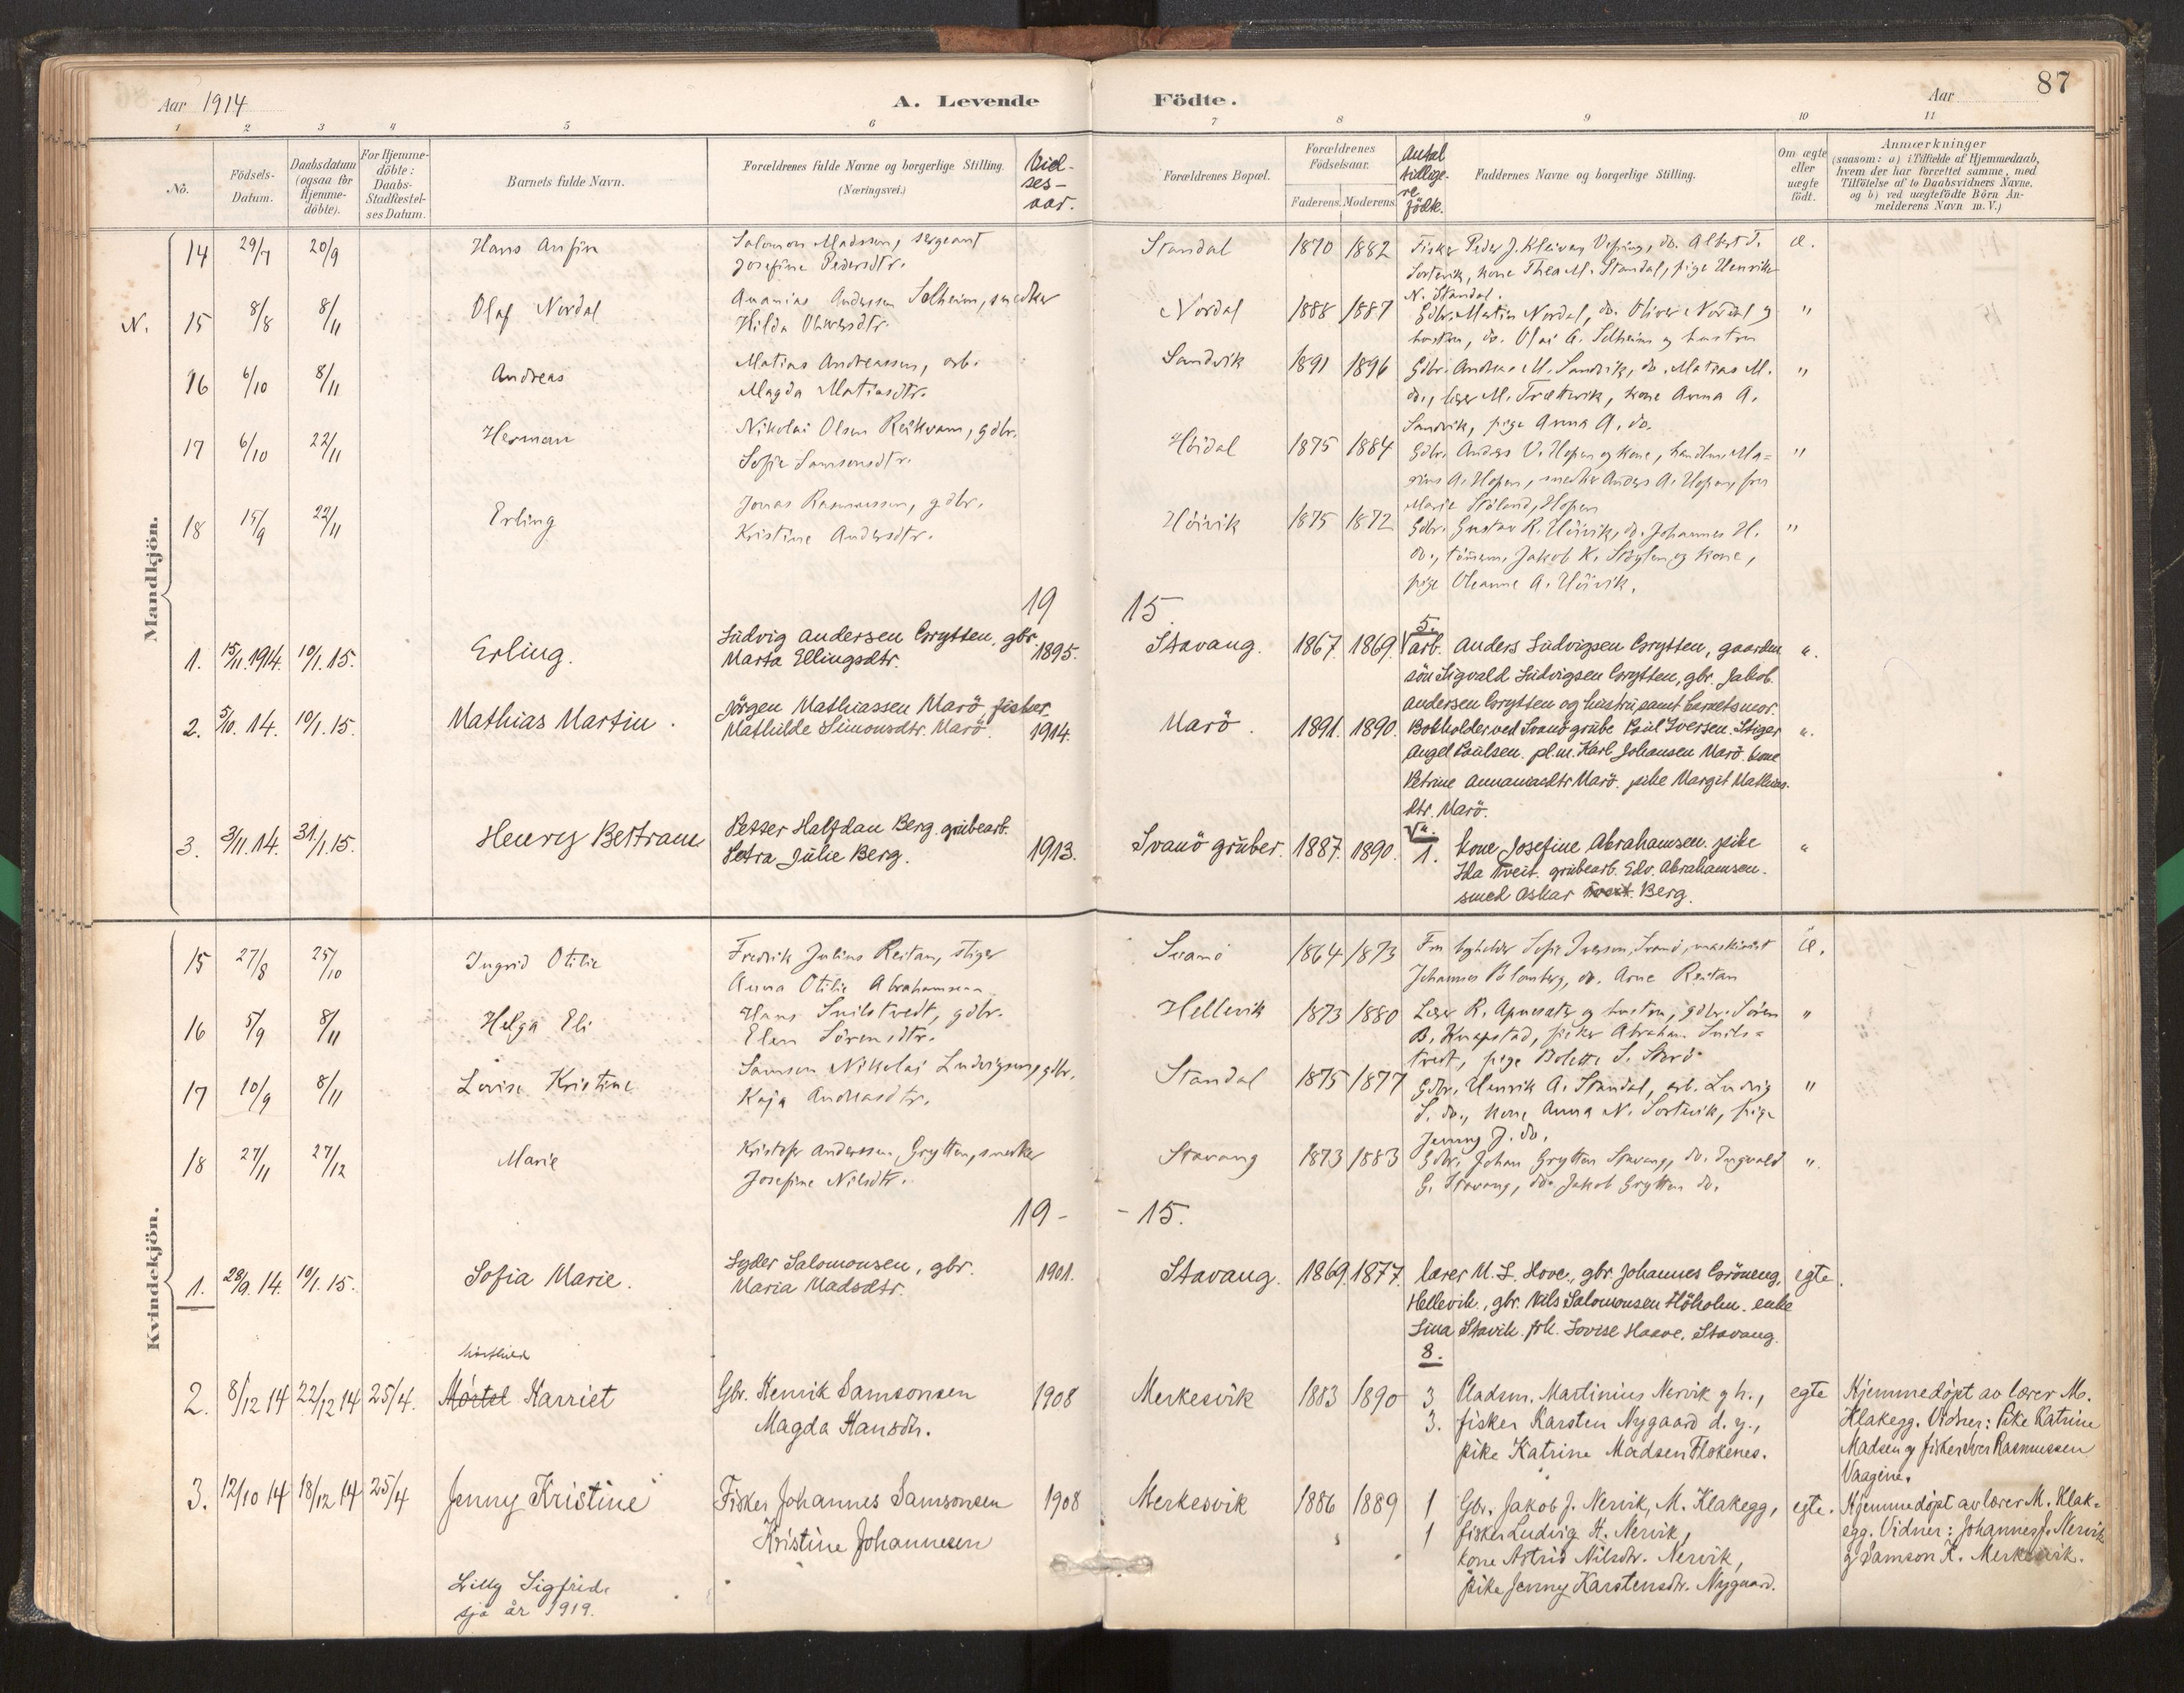 87
Aar 1914
A. Levende Födte.
Aar
1 2 3 4 5 6 7 8 9 10 11
No.
Födsels-Datum.
Daabsdatum (ogsaa for Hjemmedöbte).
For Hjemmedöbte: Daabs-Stadfæstelses Datum.
Barnets fulde Navn.
Forældrenes fulde Navne og borgerlige Stilling. (Næringsvei.)
Vielses-aar.
Forældrenes Bopæl.
Forældrenes Födselsaar.
Faderens. Moderens.
Antal tidligere födte.
Faddernes Navne og borgerlige Stilling.
Om ægte eller uægte födt.
Anmærkninger
(saasom: a) i Tilfælde af Hjemmedaab, hvem der har forrettet samme, med Tilföielse af to Daabsvidners Navne, og b) ved uægtefödte Börn Anmelderens Navn m. V.)
Mandkjön.
14 29/7 20/9 Hans Anfin Salomon Madssen, sergeant Standal 1870 1882 Fisker Peder J. Kleiven, do. Albert T. æ.
Josefine Pedersdtr. Sortevik, kone Thea M. Standal, pige Henrikke
N. Standal.
N. 15 8/8 8/11 Olaf Nordal Ananias Anderssen Solheim, snedker Nordal 1888 1887 Gdbr. Martin Nordal, do. Oliver Nordal og "
Hilda Oliversdtr. hustru, do. Olai A. Solheim og hustru
16 6/10 8/11 Andreas Matias Andreassen, arb. Sandvik 1891 1896 Gdbr. Andreas M. Sandvik, do. Matias M. "
Magda Matiasdtr. do., lærer M. Trættevik, kone Anna A.
Sandvik, pige Anna A. do.
17 6/10 22/11 Herman Nikolai Olsen Reikvam, gdbr. Höidal 1875 1884 Gdbr. Anders V. Hopen og kone, handlm. Ma= "
Sofie Samsonsdtr. rius A. Hopen, snedker Anders A. Hopen, fru
Marie Höland, Hopen
18 15/9 22/11 Erling Jonas Rasmussen, gdbr. Höivik 1875 1872 Gdbr. Gustav R. Höivik, do. Johannes H. "
Kristine Andersdtr. do., tömm. Jakob K. Stöylen og kone,
pige Oleanne A. Höivik.
19 15
5.
1. 15/11.1914. 10/1.15. Erling. Ludvig Andersen Grytten, gbr. 1895. Stavang. 1867. 1869. arb. Anders Ludvigsen Grytten, gaardm. "
Marta Ellingsdtr. sön Sigvald Ludvigsen Grytten, gbr. Jakob
Andersen Grytten og hustru samt barnets mor.
2. 5/10. 14. 10/1.15. Mathias Martin. Jörgen Mathiassen Marö fisker 1914. Marö. 1891. 1890. Bokholder ved Svanö grube Paul Iversen. Stiger "
Mathilde Simonsdtr. Marö. Angel Paulsen. pl.m. Karl Johansen Marö. kone
Petrine Annaniasdtr Marö. pike Margit Mathias-
dtr. Marö.
3. 3/11.14. 31/1.15. Henry Bertram Petter Halfdan Berg. grubearb. 1913. Svanö gruber. 1887. 1890. 1. kone Josefine Abrahamsen. pike "
Petra Julie Berg. Ida Tveit. grubearb. Edv. Abrahamsen.
smed Oskar Tveit. Berg.
Kvindekjön.
15 27/8 25/10 Ingrid Otilie Fredrik Julius Reitan, stiger Svanö 1864 1873 Fru Sofie Iversen, Svanö, maskinist æ.
Anna Otilie Abrahamsen Johannes Blomberg, do. Arne Reitan
16 5/9 8/11 Helga Eli Hans Snilstvedt, gdbr. Hellevik 1873 1880 Lærer R. Apnesæter og hustru, gdbr. Sören "
Elen Sörensdtr. B. Knapstad, fisker Abraham Snils=
tvedt, pige Bolette S. Storö
17 10/9 8/11 Lovise Kristine Samson Nikolai Ludvigsen, gdbr. Standal 1875 1877 Gdbr. Henrik A. Standal, arb. Ludvig "
Kaja Andreasdtr. S. do., kone Anna N. Sortevik, pige
Jenny J. do.
18 27/11 27/12 Marie Kristofer Anderssen Grytten, snedker Stavang 1873 1883 Gdbr. Johan Grytten Stavang, do. Ingvald "
Josefine Nilsdtr. G. Stavang, do. Jakob Grytten do.
19 - - 15.
1. 28/9. 14. 10/1.15. Sofia Marie. Syder Salomonsen, gbr. 1901. Stavang. 1869. 1877. lærer M. L. Hove, gbr. Johannes Gröneng, egte.
Maria Madsdtr. Hellevik., gbr. Nils Salomonsen Höholm. enke
Lina Stavik. frk. Lovise Haave. Stavang.
8.
2. 8/12 14 22/12 14 25/4. Mørtel Harriet Gbr. Henrik Samsonsen 1908 Merkesvik 1883 1890 3 Kladsm. Martinius Nervik g h., egte Hjemmedøpt av lærer M.
Magda Hansdtr. 3. fisker Karsten Nygaard d. y., Klakegg. Vidner: Pike Katrine
pike Katrine Madsen Flokenes. Madsen og fisker Iver Rasmussen
Vaagine.
3. 12/10 14 18/12 14 25/4 Jenny Kristine Fisker Johannes Samsonsen 1908 Merkesvik 1886 1889 1 Gbr. Jakob J. Nervik, M. Klakegg, egte. Hjemmedøpt av lærer M. Klak-
Kristine Johannesen 1 fisker Ludvig H. Nervik, egg. Vidner: Johannes J. Nervik
kone Astrid Nilsdtr. Nervik, og Samson K. Merkesvik.
pike Jenny Karstensdtr. Nygaard.
Lilly Sigfrid
sjå år 1919.